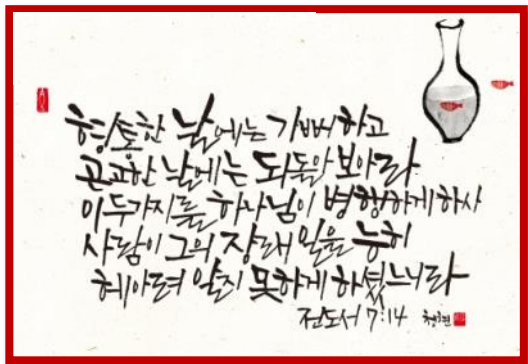 형통한 날에는 기뻐하고
곤고한 날에는 되돌아 보아라
이 두가지를 하나님이 병행하게 하사
사람이 그의 장래 일을 능히
헤아려 알지 못하게 하셨느니라
전도서 7:14 청현